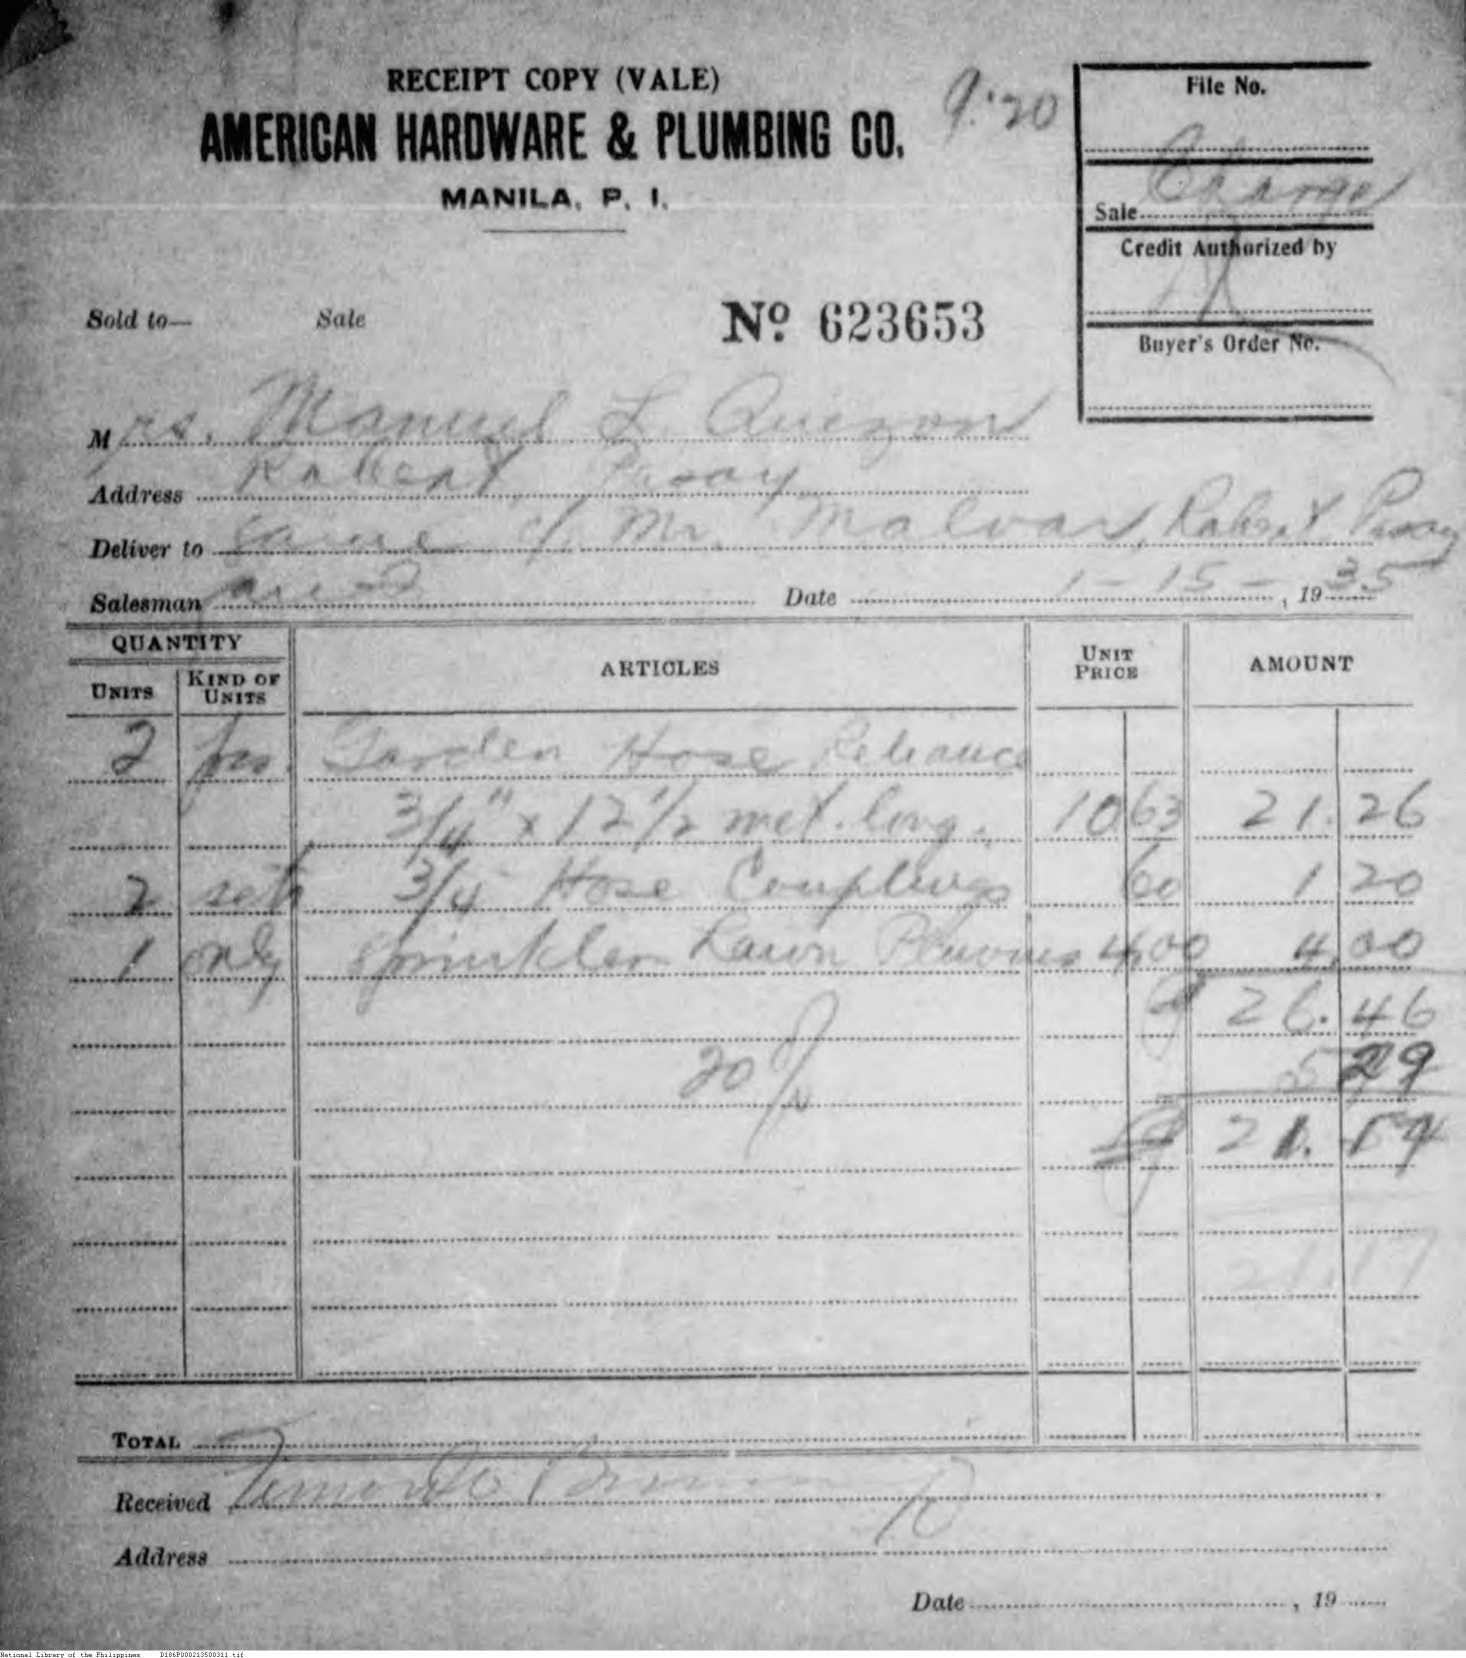 RECEIPT COPY (VALE)
AMERICAN HARDWARE & PLUMBING CO.
MANILA, P. I.
9:20
File No.
Sale Charge
Credit Authorized by
Buyer's Order No.
Sold to— Sale
Nº 623653
Mrs. Manuel L Quezon
Address Robert Pasay
Deliver to same c/. Mr. Malvar, Robert Pasay
Salesman
Date 1-15-, 1935
QUANTITY ARTICLES UNIT PRICE AMOUNT
UNITS KIND OF UNITS
2 pcs. Garden Hose Reliance
3/4" x 12 1/2 met. long. 10 63 21. 26
2 sets 3/4 Hose Couplings 60 1 20
1 only Sprinkler Lawn Pluvius 4.00 4.00
26. 46
20 % 5 29
21. 17
21 17
TOTAL
Received
Address
Date , 19
National Library of the Philippines D186P000213500311.tif